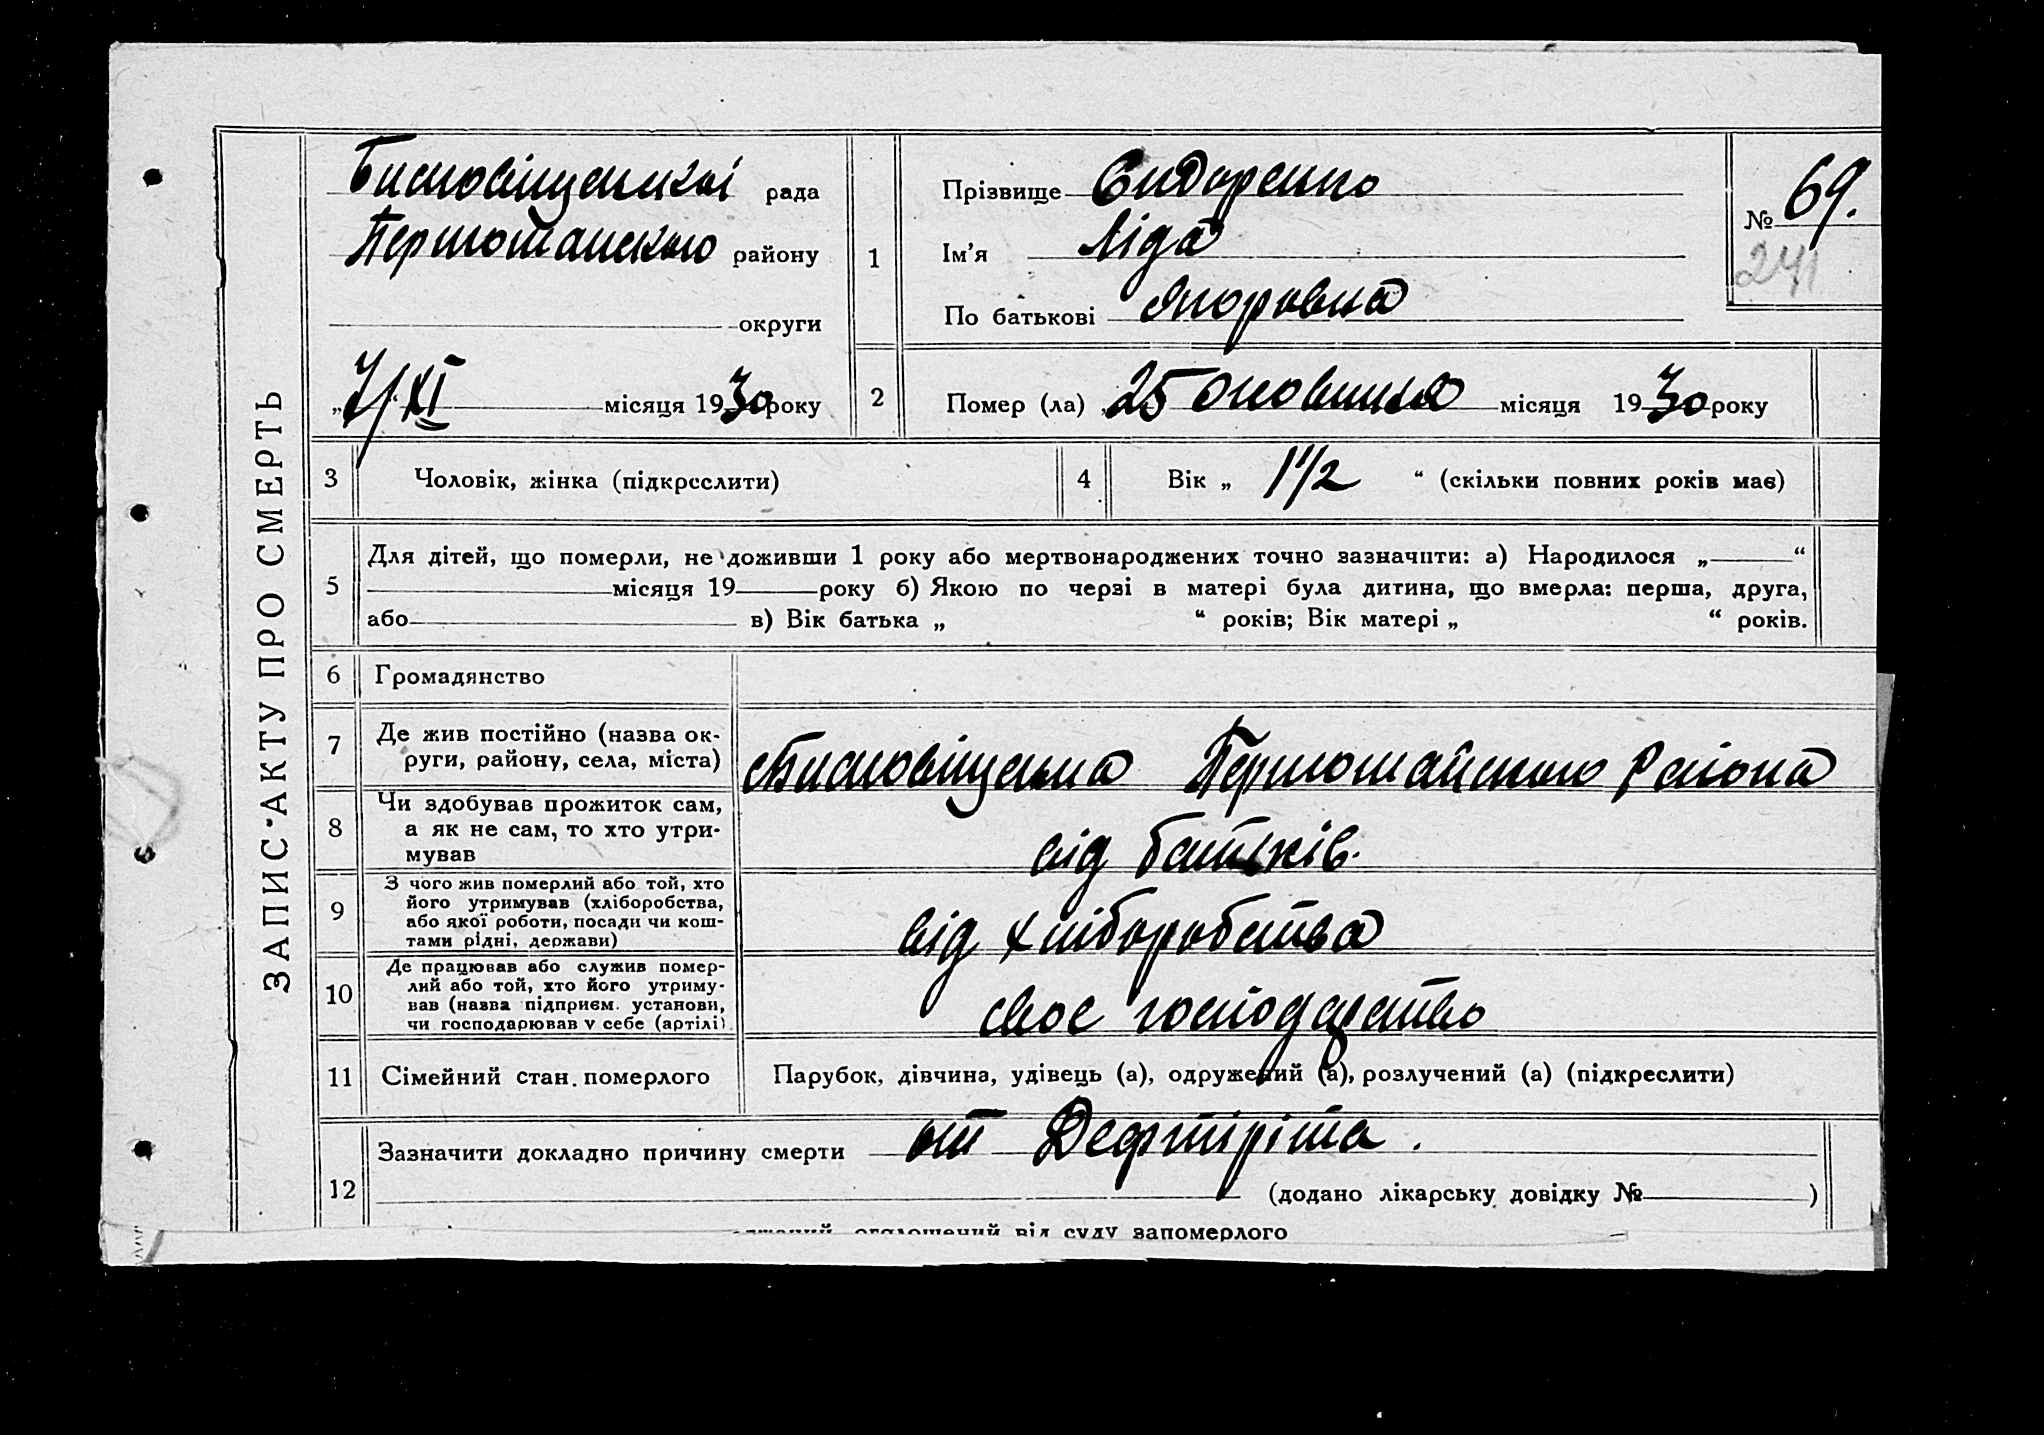 ЗАПИС-АКТУ ПРО СМЕРТЬ
рада
Першотравнського району
округи
„7/XI місяця 1930 року
1
Прізвище Сидоренко
Ім'я Ліда
По батькові Єгоровна
№ 69.
241
2
Помер (ла) „25 Октября місяця 1930 року
3 Чоловік, жінка (підкреслити)
4 Вік „ 1 1/2 “ (скільки повних років має)
5
Для дітей, що померли, не доживши 1 року або мертвонароджених точно зазначити: а) Народилося „ “
місяця 19 року б) Якою по черзі в матері була дитина, що вмерла: перша, друга,
або в) Вік батька „ “ років; Вік матері „ “ років.
6 Громадянство
7 Де жив постійно (назва ок-
руги, району, села, міста)
Першомайського Района
8 Чи здобував прожиток сам,
а як не сам, то хто утри-
мував
від батьків.
9 З чого жив померлий або той, хто
його утримував (хліборобства,
або якої роботи, посади чи кош-
тами рідні, держави)
від хліборобства
10 Де працював або служив помер-
лий або той, хто його утриму-
вав (назва підприєм. установи,
чи господарював у себе (артілі)
своє господарство
11 Сімейний стан. померлого
Парубок, дівчина, удівець (а), одружений (а), розлучений (а) (підкреслити)
12
Зазначити докладно причину смерти от Дефтіріта.
(додано лікарську довідку № )
оголошений від суду запомерлого